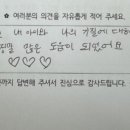 ※ 여러분의 의견을 자유롭게 적어 주세요.
내 아이와 나의 기질에 대해
많은 도움이 되었어요
♡♡♡
까지 답변해 주셔서 진심으로 감사드립니다.